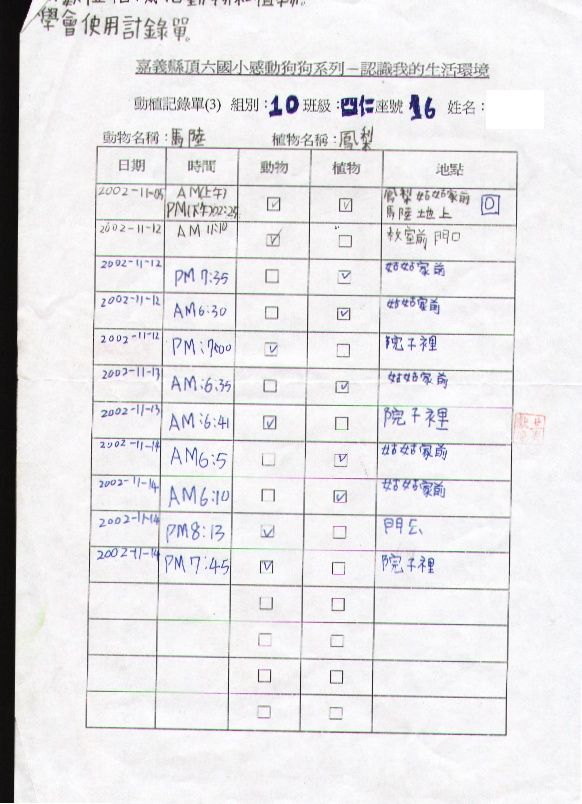 學會使用計錄單。
嘉義縣頂六國小感動狗狗系列－認識我的生活環境
動植記錄單(3) 組別：10 班級：四仁 座號 16 姓名：
動物名稱：馬陸 植物名稱：鳳梨
日期 時間 動物 植物 地點
2002-11-05 AM(上午) PM(下午)02:25 ☑ ☑ 鳳梨 姑姑家前 馬陸 地上
2002-11-12 AM 11:10 ☑ ☐ 教室前門口
2002-11-12 PM 7:35 ☐ ☑ 姑姑家前
2002-11-12 AM6:30 ☐ ☑ 姑姑家前
2002-11-12 PM:7:00 ☑ ☐ 院子裡
2002-11-13 AM:6:35 ☐ ☑ 姑姑家前
2002-11-13 AM:6:41 ☑ ☐ 院子裡
2002-11-14 AM6:5 ☐ ☑ 姑姑家前
2002-11-14 AM6:10 ☐ ☑ 姑姑家前
2002-11-14 PM8:13 ☑ ☐ 門
2002-11-14 PM7:45 ☑ ☐ 院子裡
☐ ☐
☐ ☐
☐ ☐
☐ ☐